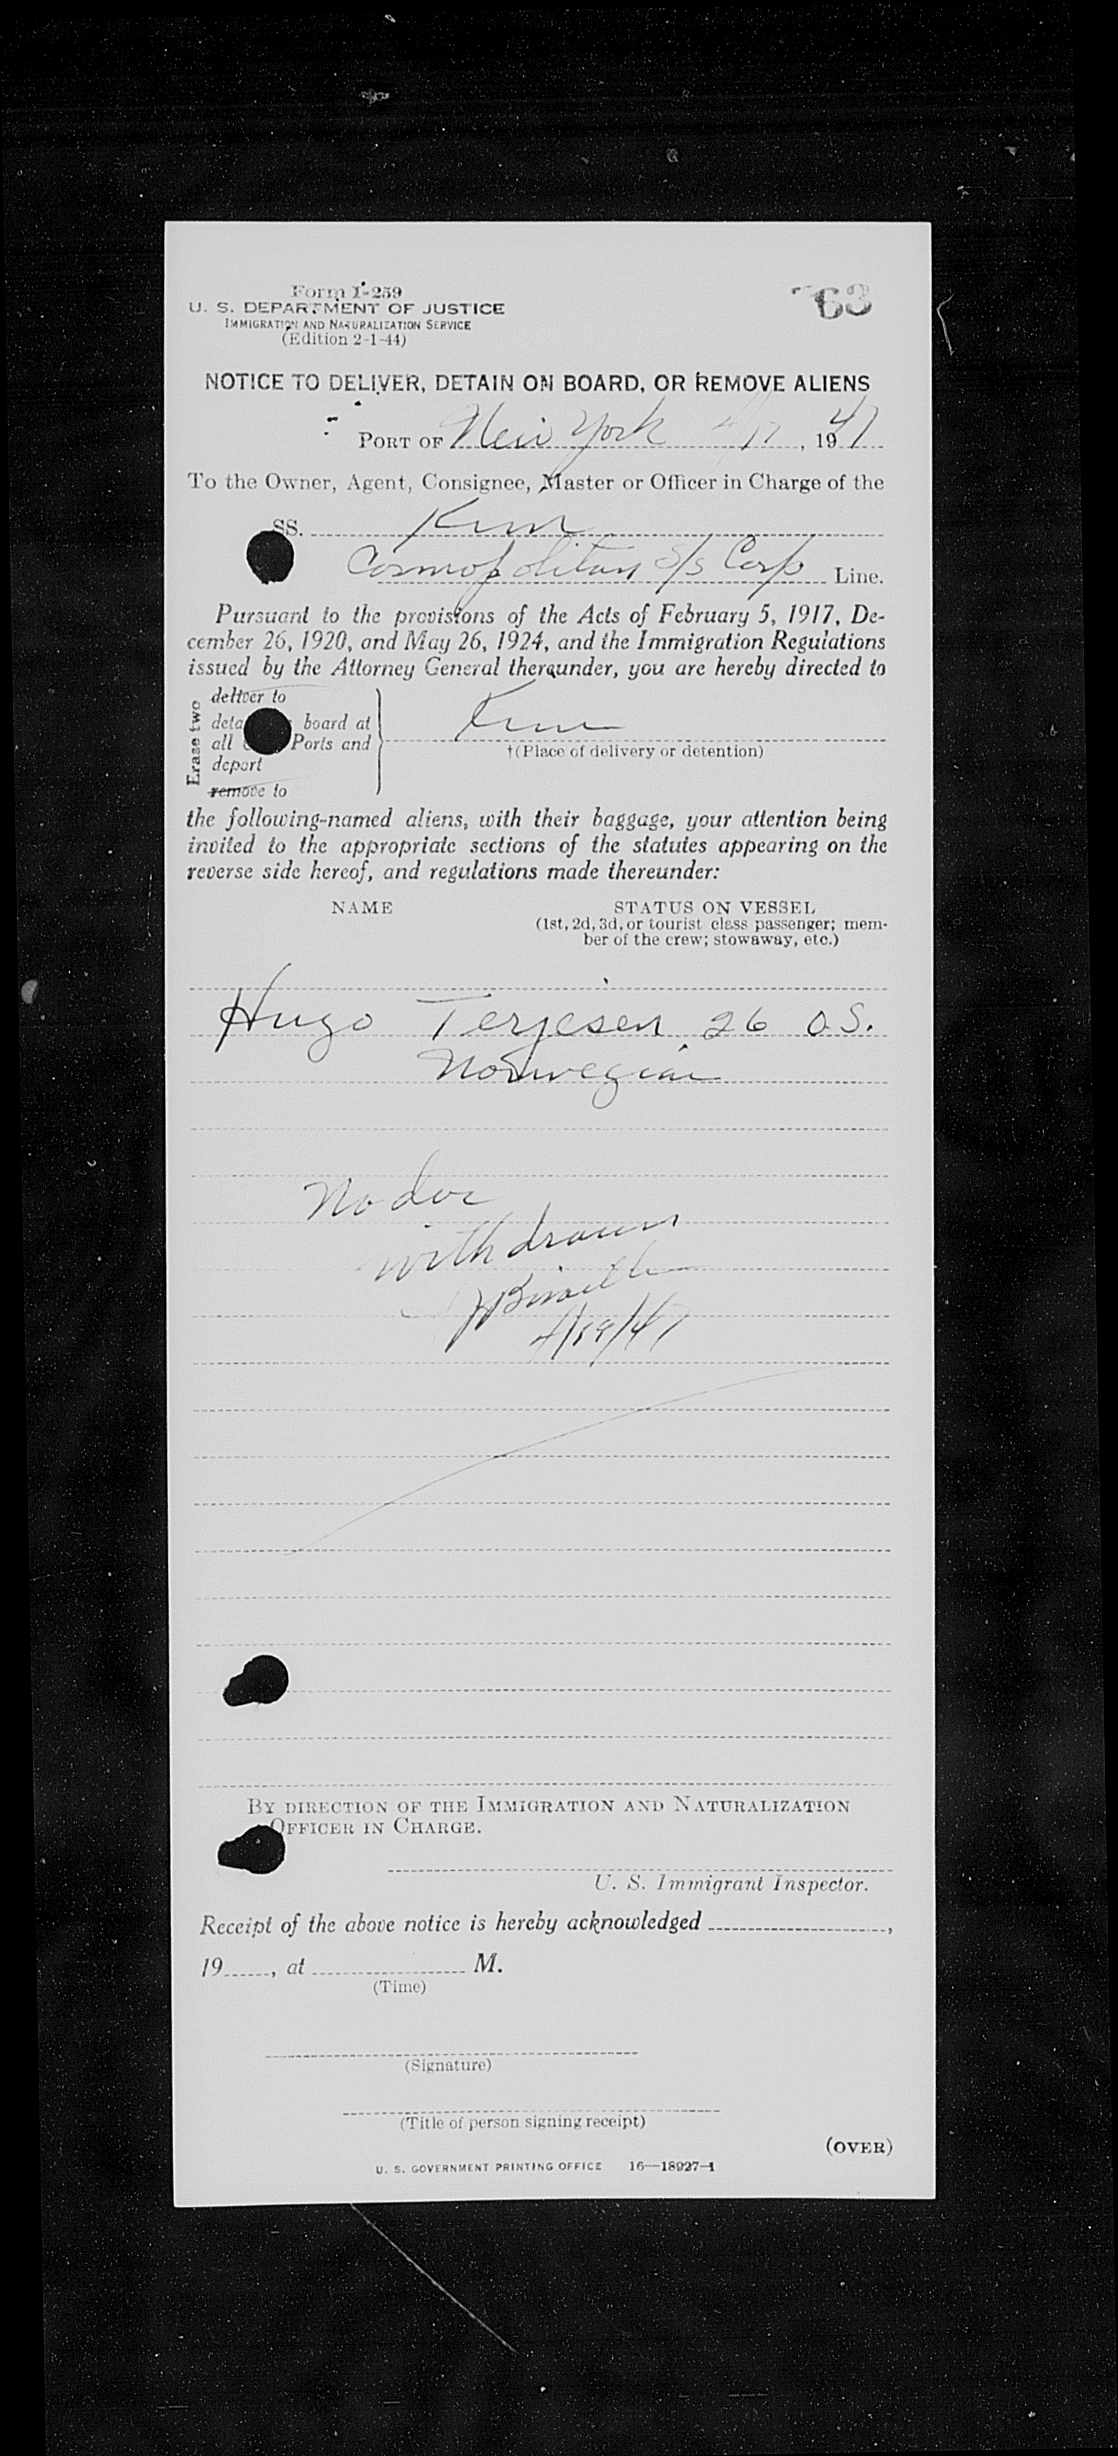 Form I-259
763
U. S. DEPARTMENT OF JUSTICE
IMMIGRATION AND NATURALIZATION SERVICE
(Edition 2-1-44)
NOTICE TO DELIVER, DETAIN ON BOARD, OR REMOVE ALIENS
PORT OF New York 4/17, 1947
To the Owner, Agent, Consignee, Master or Officer in Charge of the
SS. Kim
Cosmopolitan S/S Corp Line.
Pursuant to the provisions of the Acts of February 5, 1917, De-
cember 26, 1920, and May 26, 1924, and the Immigration Regulations
issued by the Attorney General thereunder, you are hereby directed to
Erase two
deliver to
deta board at
all Ports and
deport
remove to
Kim
†(Place of delivery or detention)
the following-named aliens, with their baggage, your attention being
invited to the appropriate sections of the statutes appearing on the
reverse side hereof, and regulations made thereunder:
NAME STATUS ON VESSEL
(1st, 2d, 3d, or tourist class passenger; mem-
ber of the crew; stowaway, etc.)
Hugo Terjesen 26 O.S.
Norwegian
No doc
withdrawn
4/19/47
BY DIRECTION OF THE IMMIGRATION AND NATURALIZATION
OFFICER IN CHARGE.
U. S. Immigrant Inspector.
Receipt of the above notice is hereby acknowledged ,
19 , at M.
(Time)
(Signature)
(Title of person signing receipt)
(OVER)
U. S. GOVERNMENT PRINTING OFFICE 16—18927-1